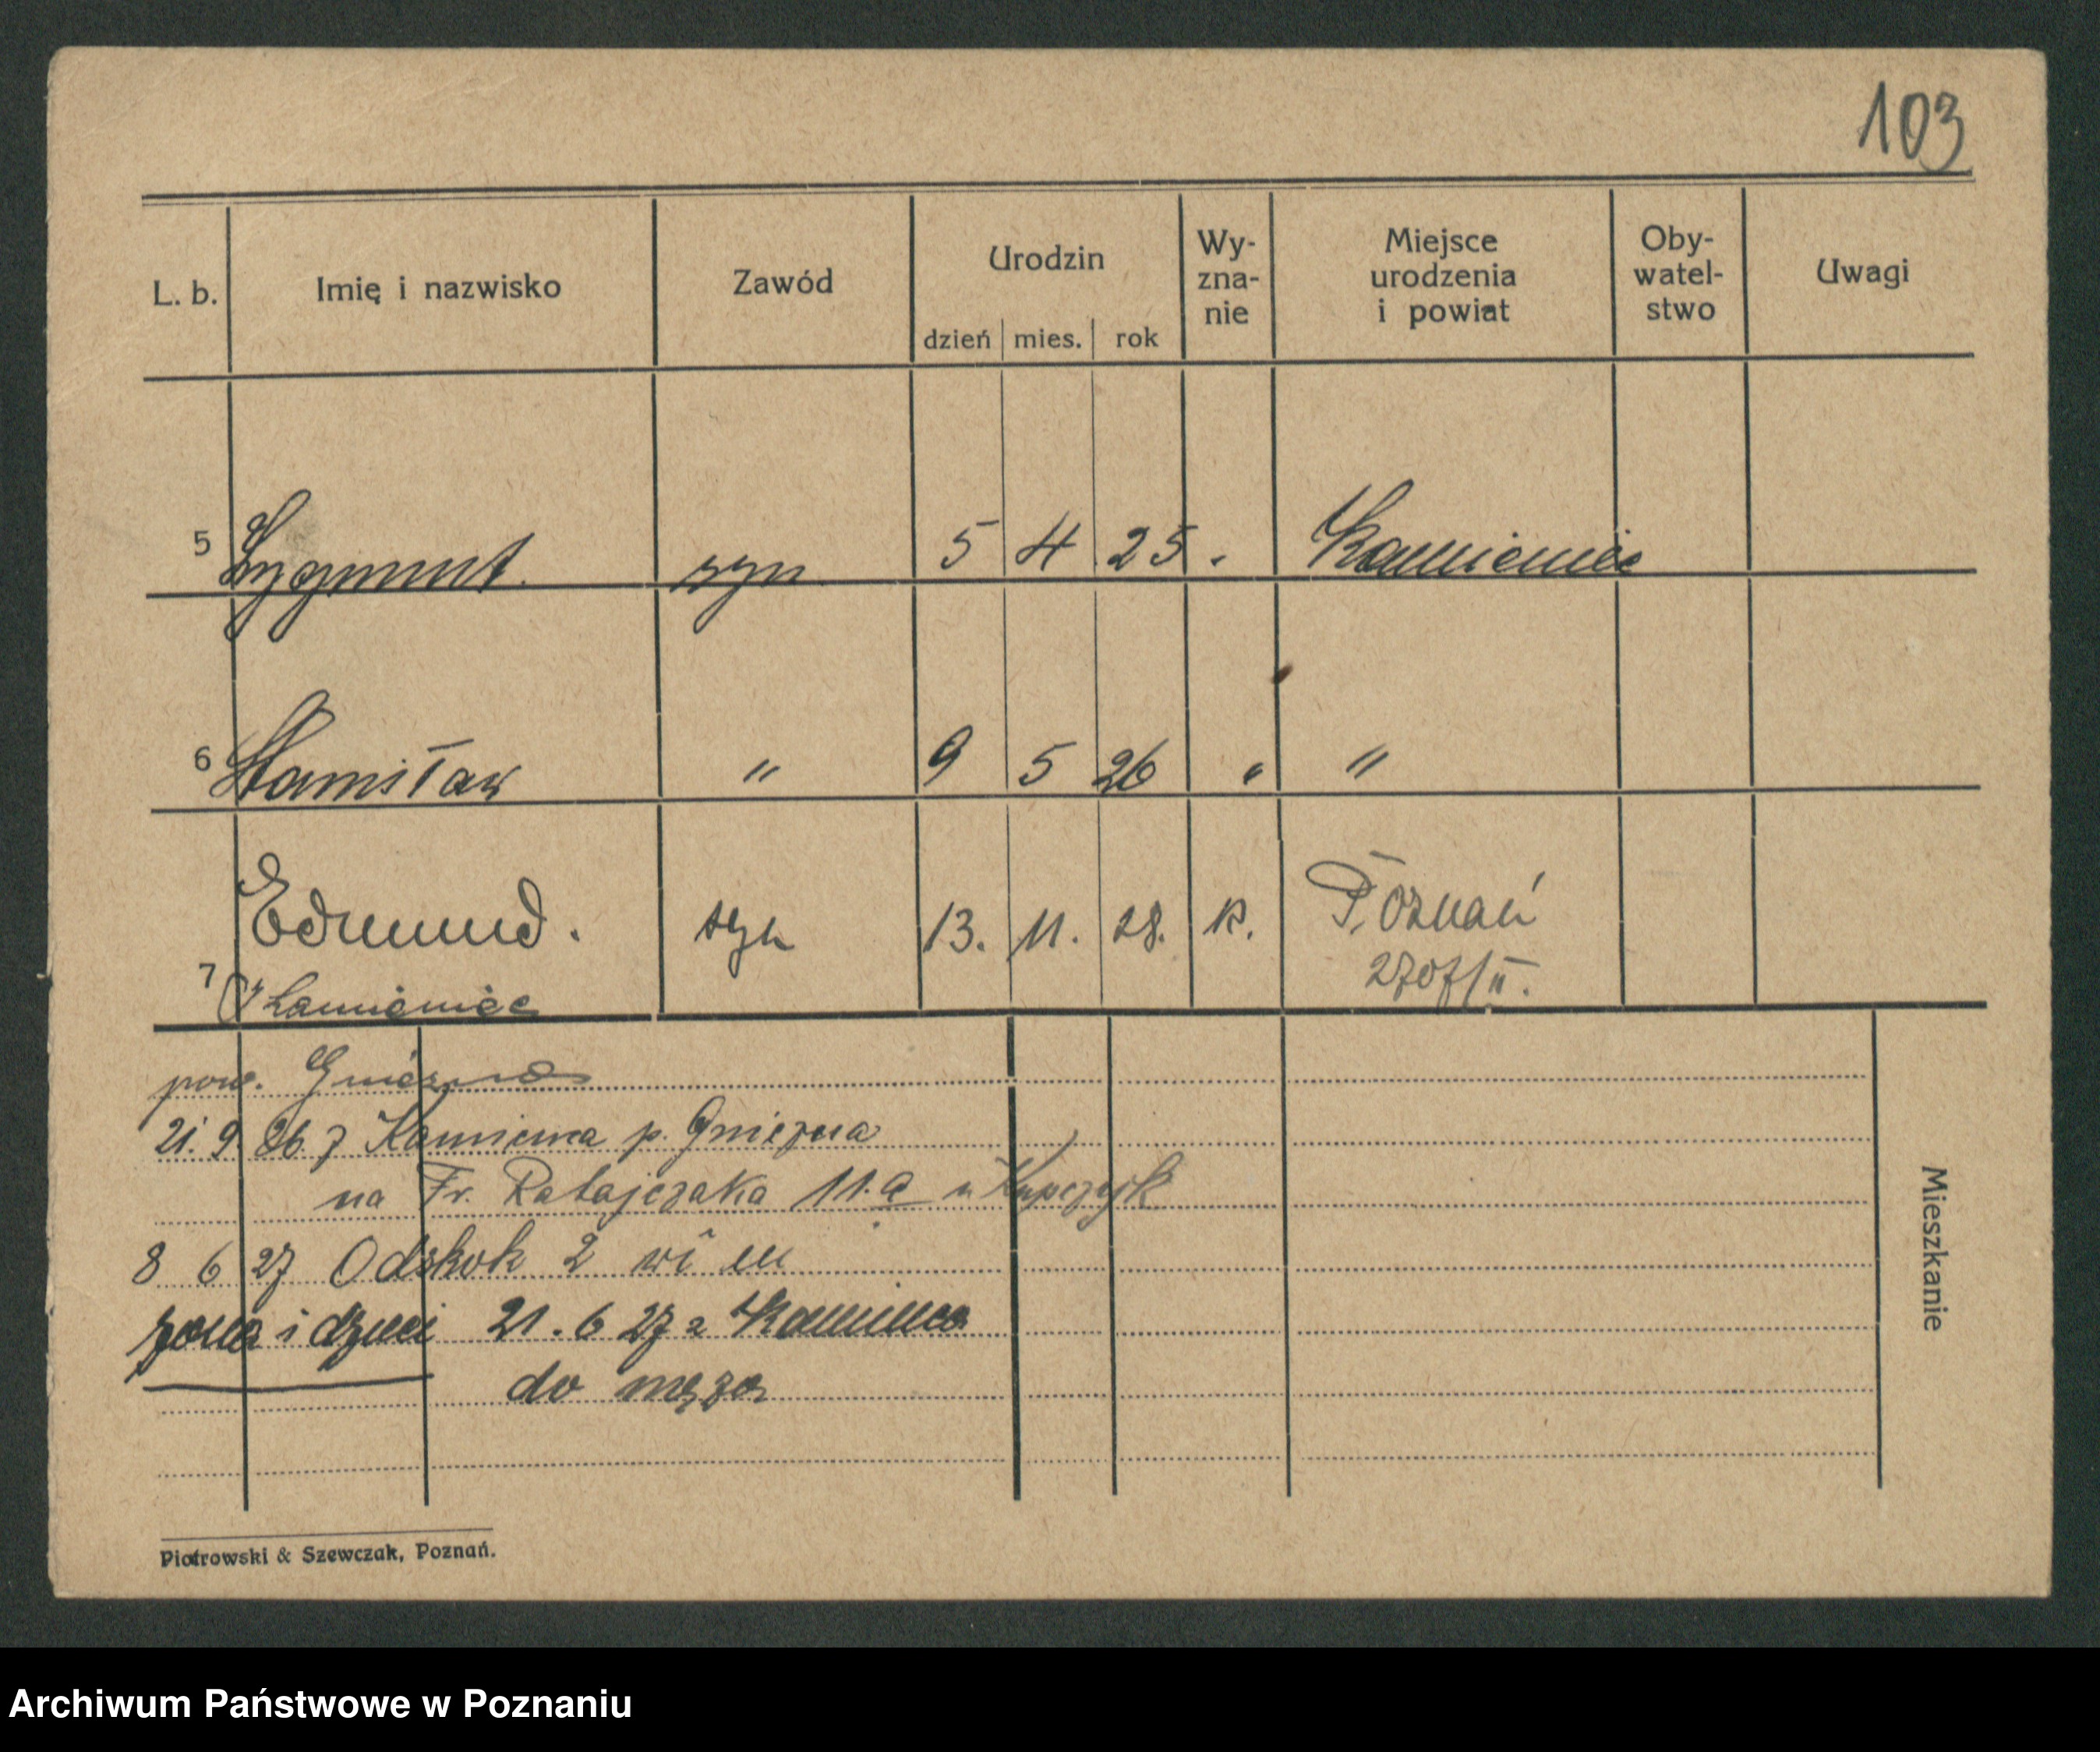 103
L. b. Imię i nazwisko Zawód Urodzin Wy- zna- nie Miejsce urodzenia i powiat Oby- watel- stwo Uwagi
dzień mies. rok
5 Zygmunt. syn 5 4 25 Kamieniec
6 Stanisław " 9 5 26 " "
Edmund. syn 13. 11. 28. K. Poznań
7 Kamieniec 2707/II.
pow. Gniezno
21. 9. 26. z Kamieńca p. Gniezna
na Fr. Ratajczaka 11.a u Kupczyk
8 6 27 Odskok 2
żona i dzieci 21. 6 27 z Kamieńca
do męża
Mieszkanie
Piotrowski & Szewczak, Poznań.
Archiwum Państwowe w Poznaniu